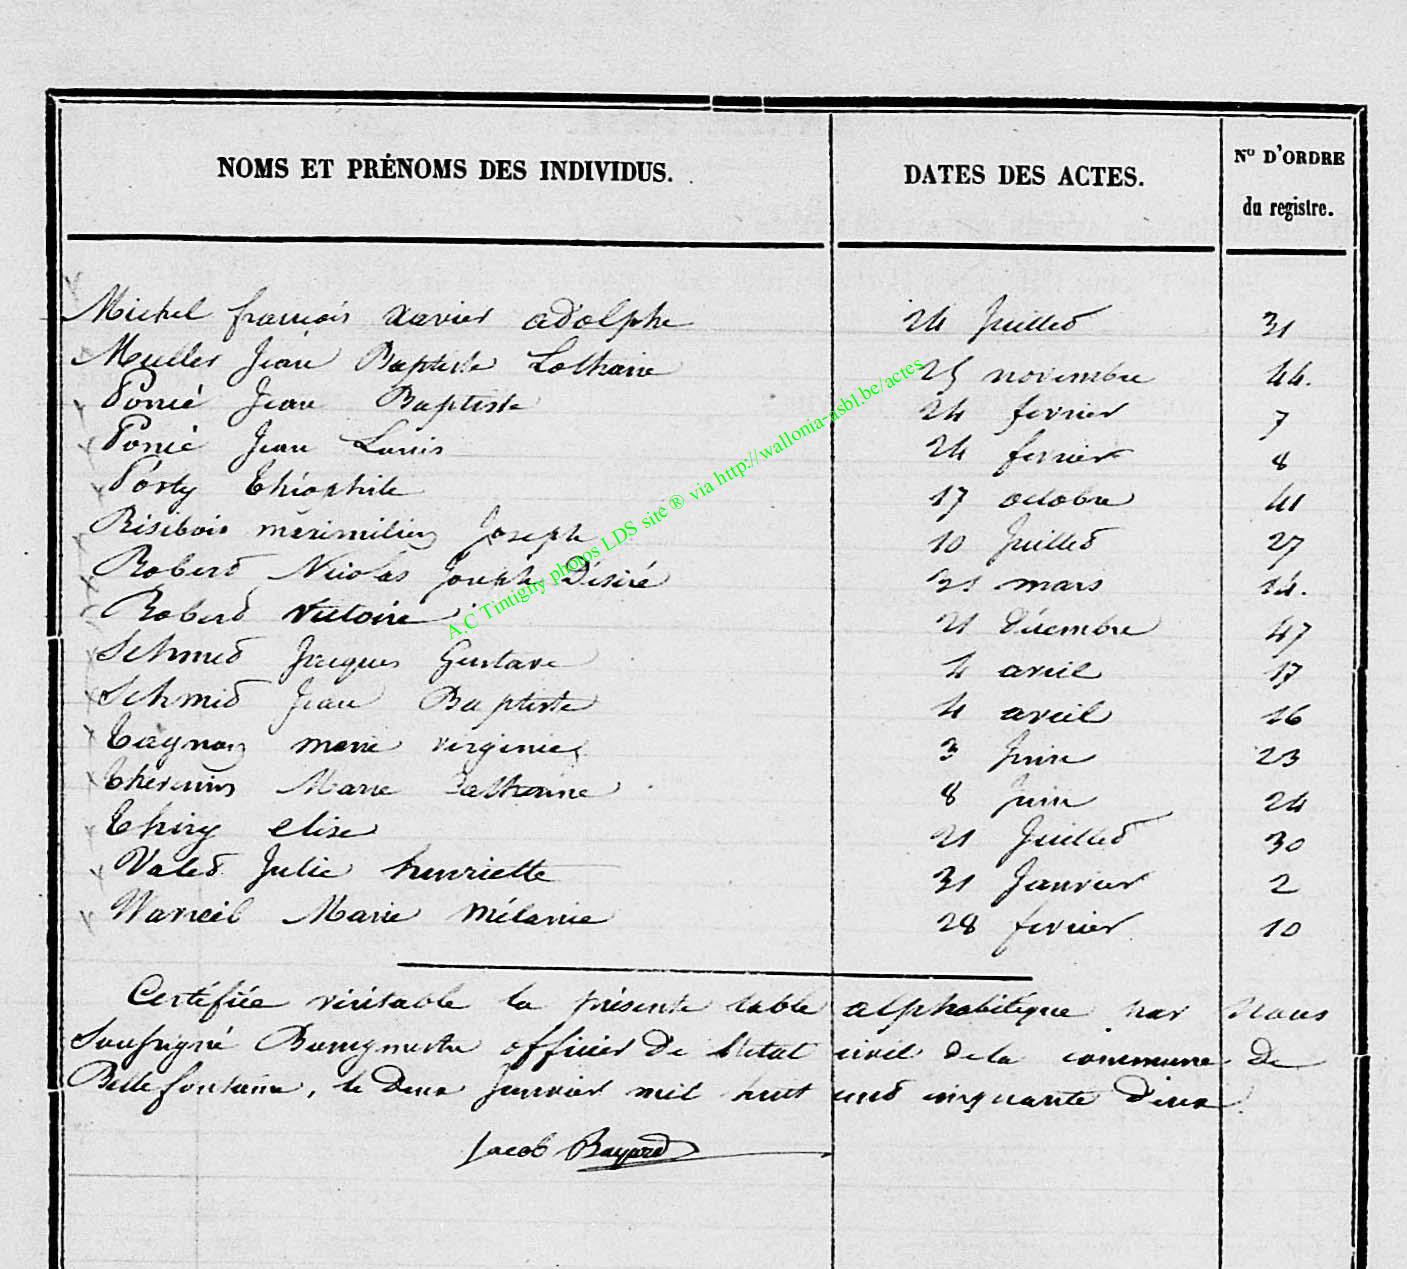 NOMS ET PRÉNOMS DES INDIVIDUS. DATES DES ACTES. No D'ORDRE
du registre.
Michel françois Xavier adolphe 24 Juillet 31
Muller Jean Baptiste Lothaire 25 novembre 44.
Ponié Jean Baptiste 24 fevrier 7
Ponié Jean Louis 24 fevrier 8
Posty Théophile 17 octobre 41
Risibois Joseph 10 Juillet 27
Robert Nicolas Joseph Désiré 21 mars 14.
Robert Victoire 21 Décembre 47
Schmit Jacques Gustave 4 avril 17
Schmit Jean Baptiste 4 avril 16
Tagnon marie virginie 3 Juin 23
Marie Catherine 8 Juin 24
Thiry elise 21 Juillet 30
Valet Julie henriette 31 Janvier 2
Marie Mélanie 28 fevrier 10
Certifiée véritable la présente table alphabétique par Nous
Soussigné Bourgmestre officier de l'état civil de la commune de
Bellefontaine, le deux Janvier mil huit cent cinquante deux.
Jacob Bayard
A.C Tintigny photos LDS site ® via http://wallonia-asbl.be/actes